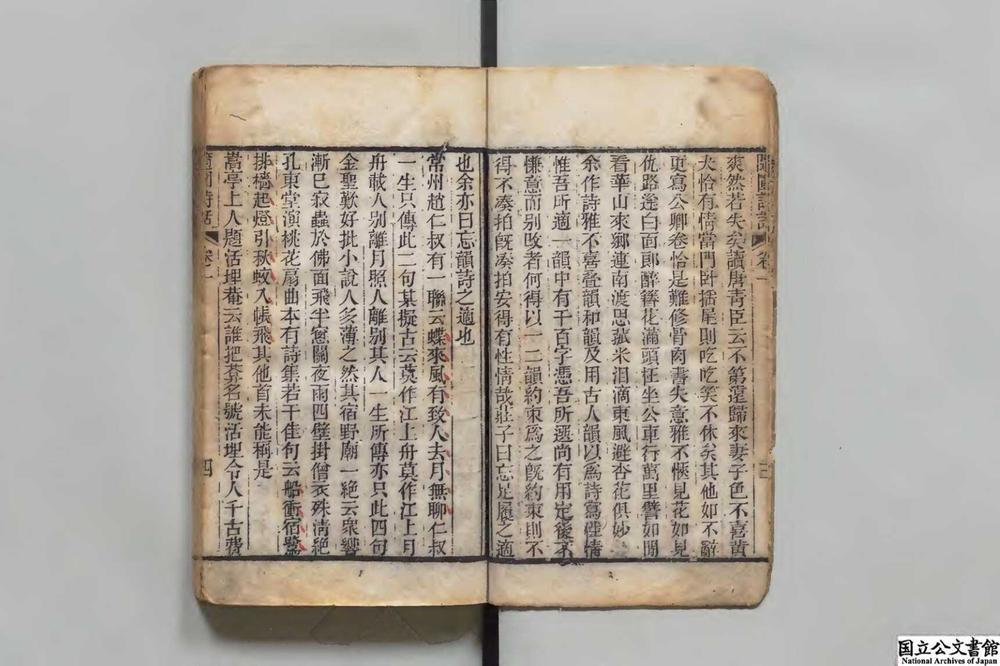 隨園詩話 卷一 三
爽然若失矣讀唐青臣云不第還歸來妻子色不喜黃
犬恰有情當門臥搖尾則吃吃笑不休矣其他如不辭
更寫公卿卷恰是難修骨肉書失意雅不愜見花如見
仇路逢白面郎醉簪花滿頭枉坐公車行萬里譬如閒
看華山來鄉連南渡思菰米淚滴東風避杏花俱妙
余作詩雅不喜疊韻和韻及用古人韻以爲詩寫性情
惟吾所適一韻中有千百字憑吾所選尚有用定後不
慊意而別改者何得以一二韻約束爲之旣約束則不
得不湊拍旣湊拍安得有性情哉莊子曰忘足履之適
也余亦曰忘韻詩之適也
常州趙仁叔有一聯云蝶來風有致人去月無聊仁叔
一生只傳此二句某擬古云莫作江上舟莫作江上月
舟載人別離月照人離別其人一生所傳亦只此四句
金聖歎好批小說人多薄之然其宿野廟一絕云衆響
漸已寂蟲於佛面飛半窗關夜雨四壁掛僧衣殊淸絕
孔東堂演桃花扇曲本有詩集若干佳句云船衝宿鷺
排檣起燈引秋蚊入帳飛其他首未能稱是
嵩亭上人題活埋菴云誰把菴名號活埋令人千古費
隨園詩話 卷一 四
国立公文書館
National Archives of Japan